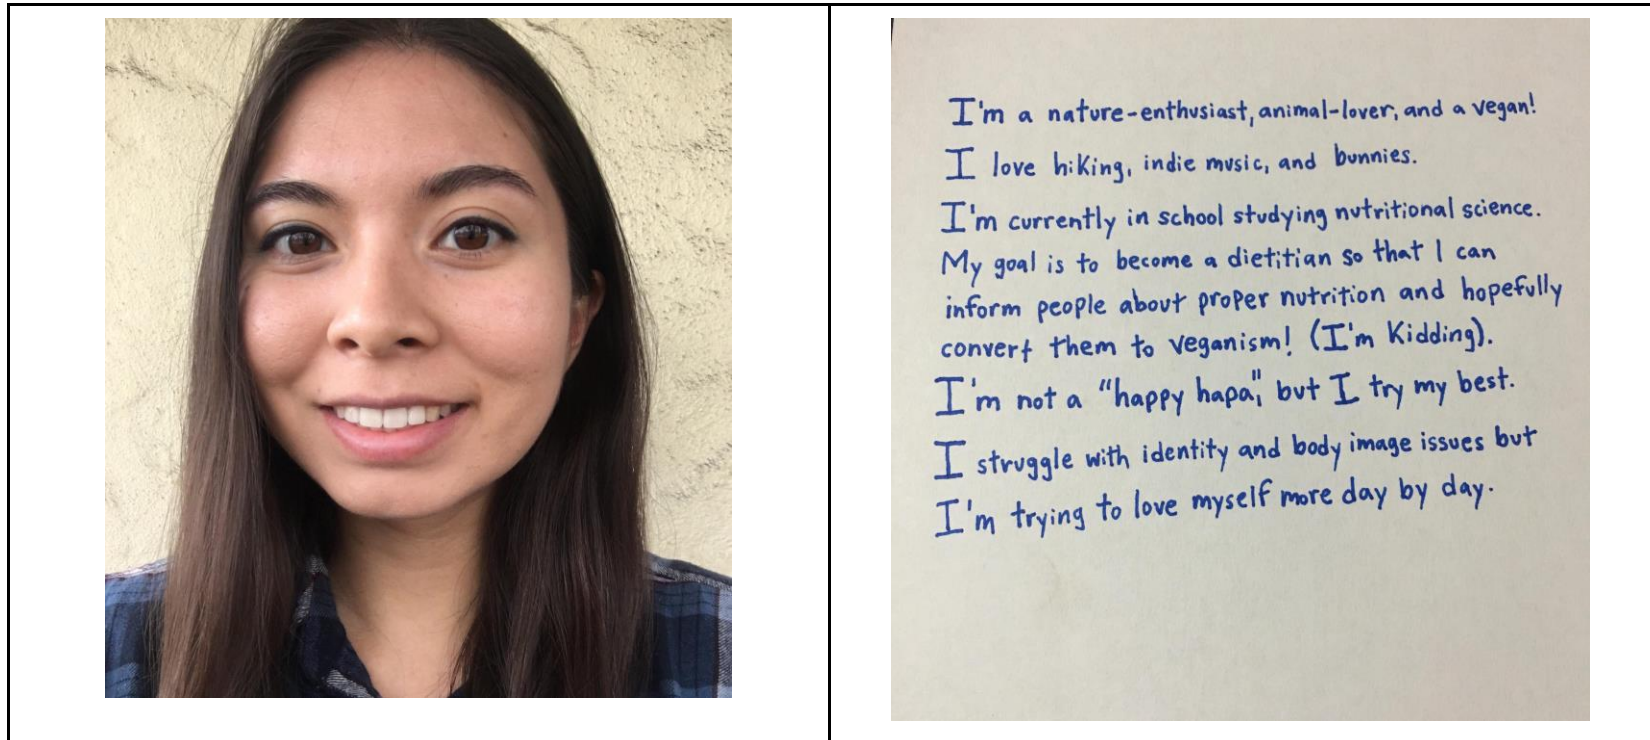 I'm a nature-enthusiast, animal-lover, and a vegan!
I love hiking, indie music, and bunnies.
I'm currently in school studying nutritional science.
My goal is to become a dietitian so that I can
inform people about proper nutrition and hopefully
convert them to veganism! (I'm Kidding).
I'm not a "happy hapa", but I try my best.
I struggle with identity and body image issues but
I'm trying to love myself more day by day.